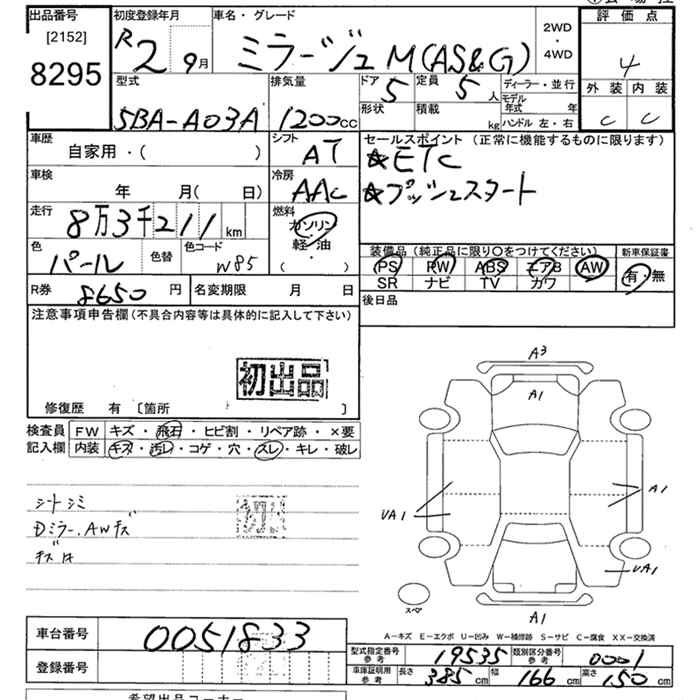 出品番号 初度登録年月 車名・グレード
[2152] 8295
R2 9月 ミラージュ M(AS&G) 2WD・4WD
評価点
4
外装 内装
C C
型式 排気量 ドア 5 定員 5人 ディーラー・並行
5BA-A03A 1200cc 形状 積載 kg モデル年式 年
ハンドル 左・右
車歴 シフト セールスポイント (正常に機能するものに限ります)
自家用・( ) AT ☆ETC
車検 冷房 ☆プッシュスタート
年 月( 日) AAC
走行 燃料
8万3千211km ガソリン・軽・油・( )
色 色替 色コード
パール W85
装備品(純正品に限り○をつけてください) 新車保証書
PS PW ABS エアB AW 有・無
SR ナビ TV カワ
R券 8650円 名変期限 月 日 後日品
注意事項申告欄(不具合内容等は具体的に記入して下さい)
初出品
修復歴 有 〔箇所 〕
検査員 FW キズ・飛石・ヒビ割・リペア跡・×要
記入欄 内装 キズ・汚レ・コゲ・穴・スレ・キレ・破レ
シートシミ
Dミラー、AWキズ
初
A3
A1
UA1
A1
UA1
A1
スペア
A-キズ E-エクボ U-凹み W-補修跡 S-サビ C-腐食 XX-交換済
車台番号 0051833
型式指定番号 参考 19535 類別区分番号 参考 0001
登録番号 車庫証明用 参考 長さ 385cm 幅 166cm 高さ 150cm
希望出品コーナー